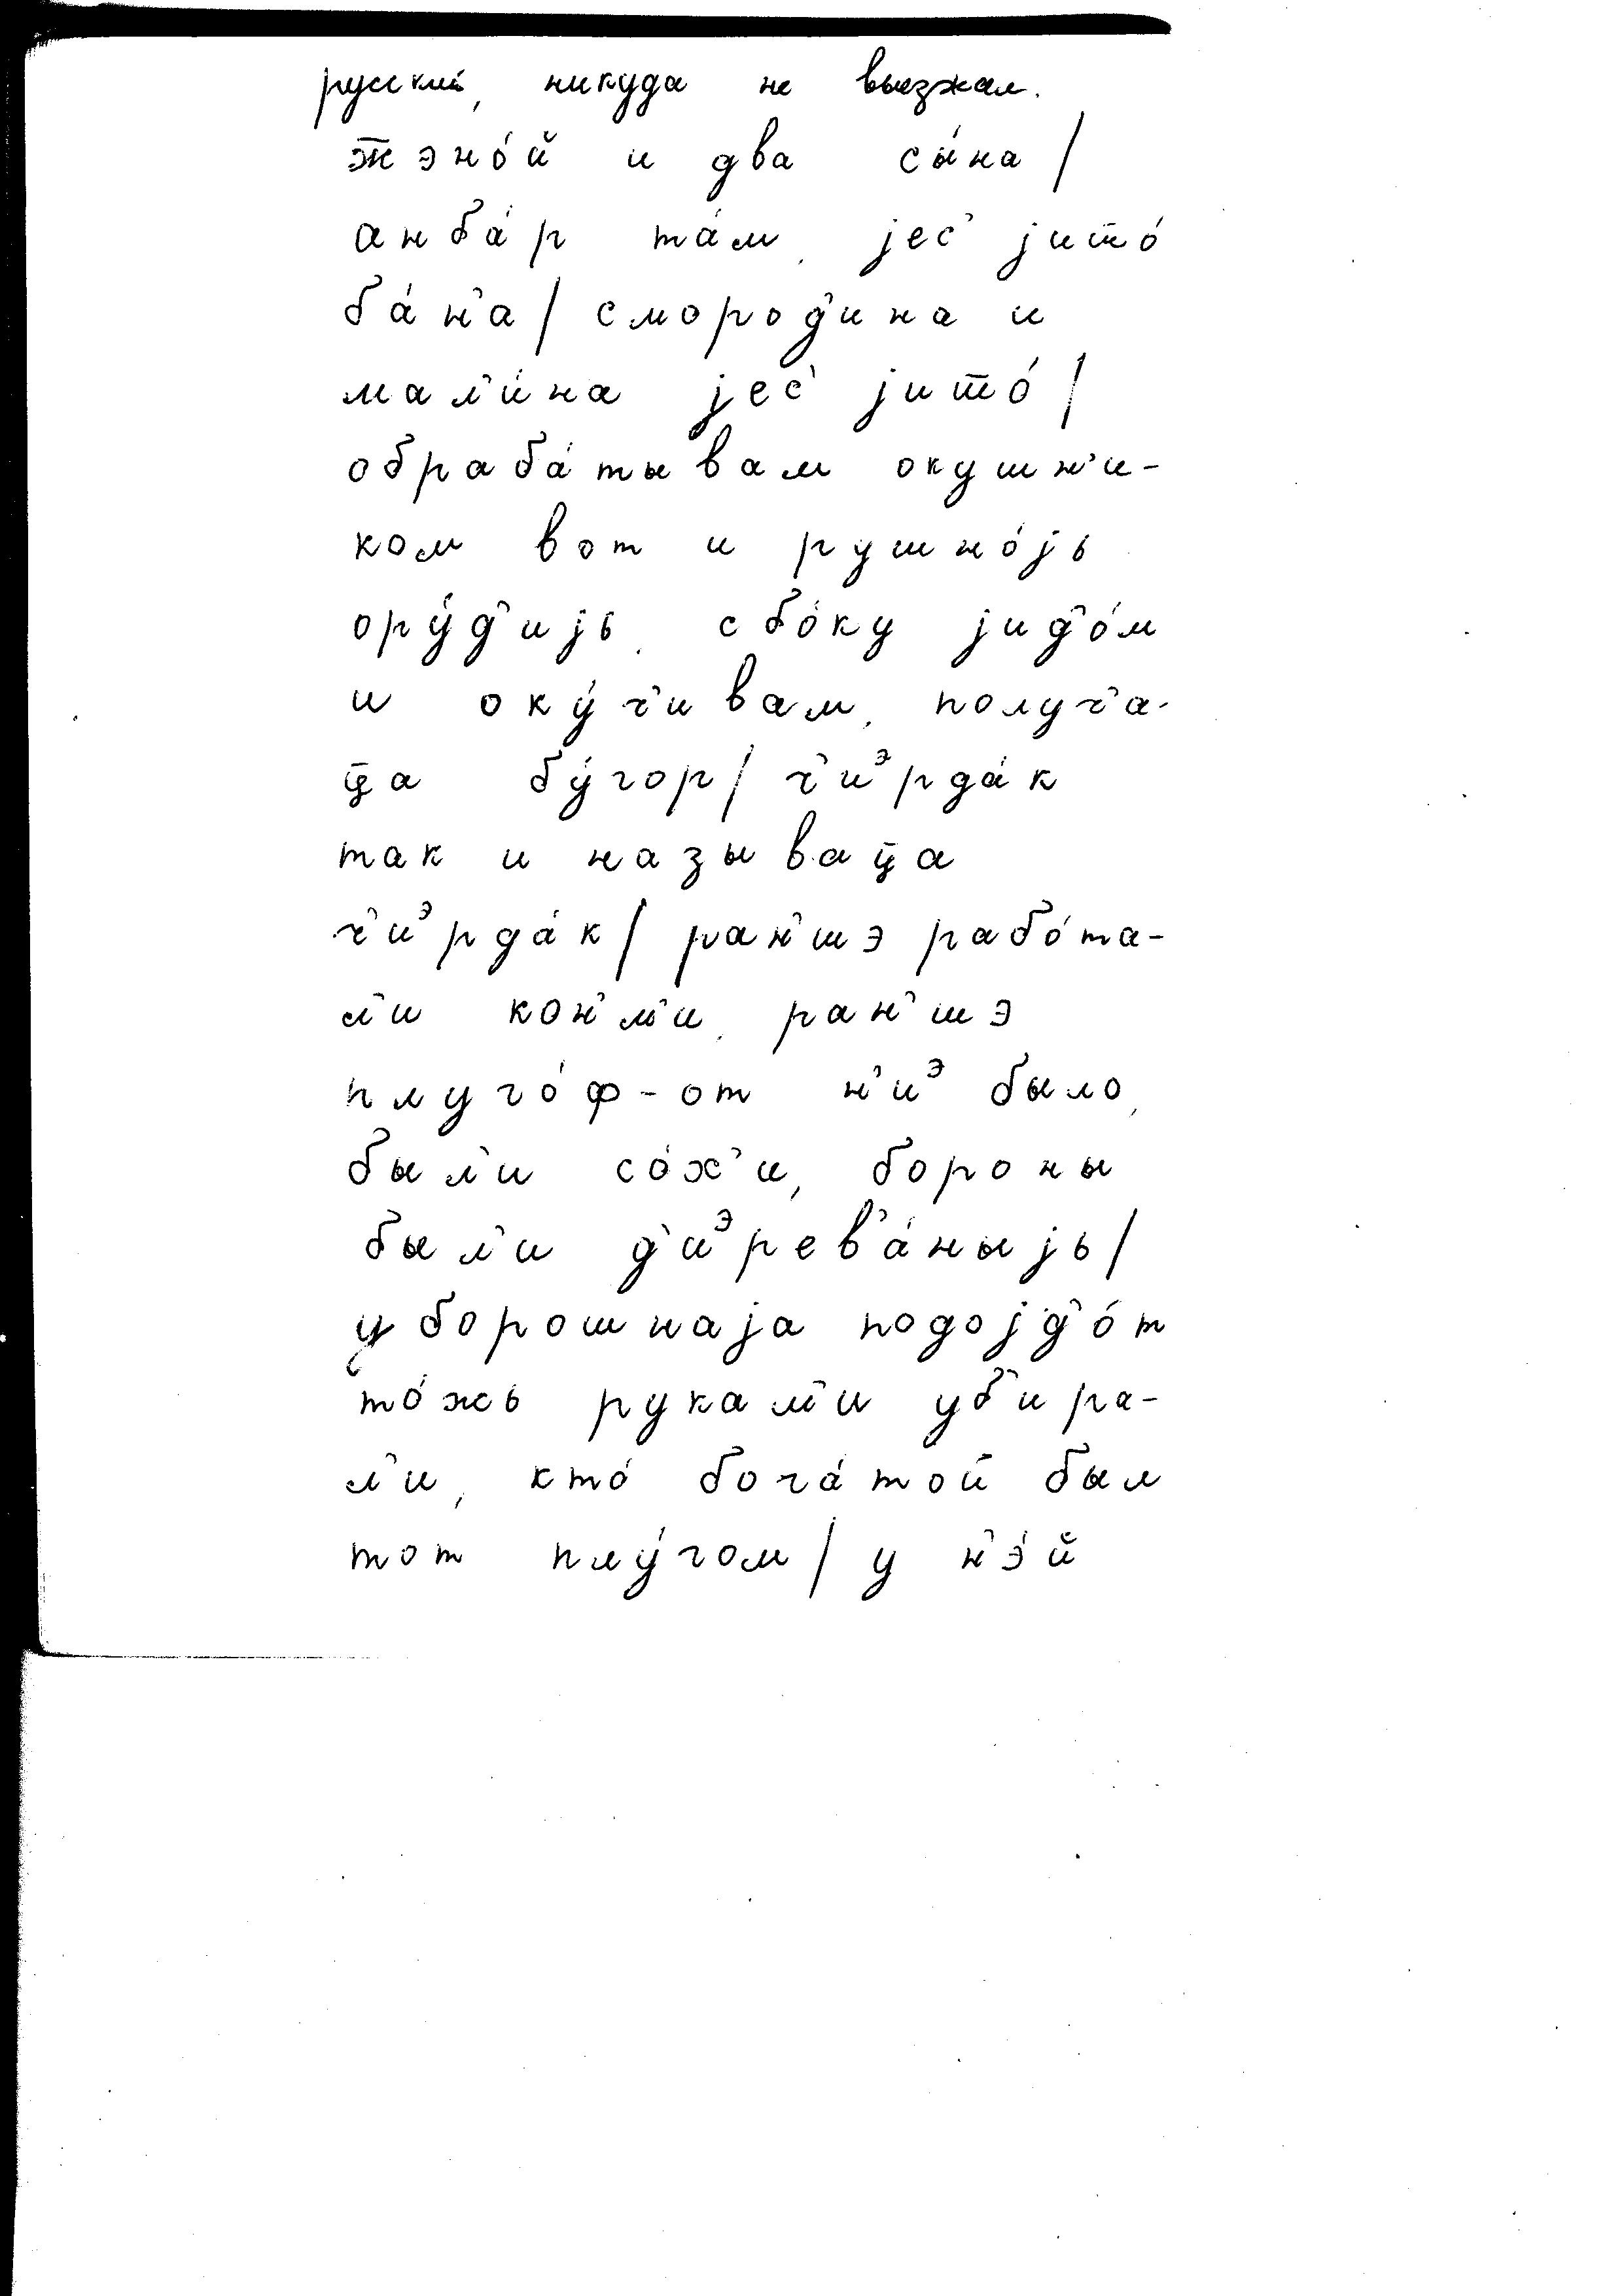 русский, никуда не выезжал.
ж̅эно́й и два сы́на /
анба́р та́м, jес' jишо́
ба́н'а / смород'ина и
мал'и́на jес' jишо́ /
обраба́тывам окушн'и-
ком вот и рушно́jь
ору́д'иjь, сбо́ку jид'о́м
и оку́ч'ивам, получ'а-
ц̅а бу́гор / ч'иᵊрда́к
так и называц̅а
ч'иᵊрда́к / ран'шэ рабо́та-
л'и кон'м'и, ран'шэ
плуго́ф-от н'иᵊ было,
был'и со́х'и, бороны
был'и д'иᵊрев'а́ныjь /
уборошнаjа подоjд'о́т
то́жь рукам'и уб'ира-
л'и, кто́ бога́той был
тот плу́гом / у н'э́й